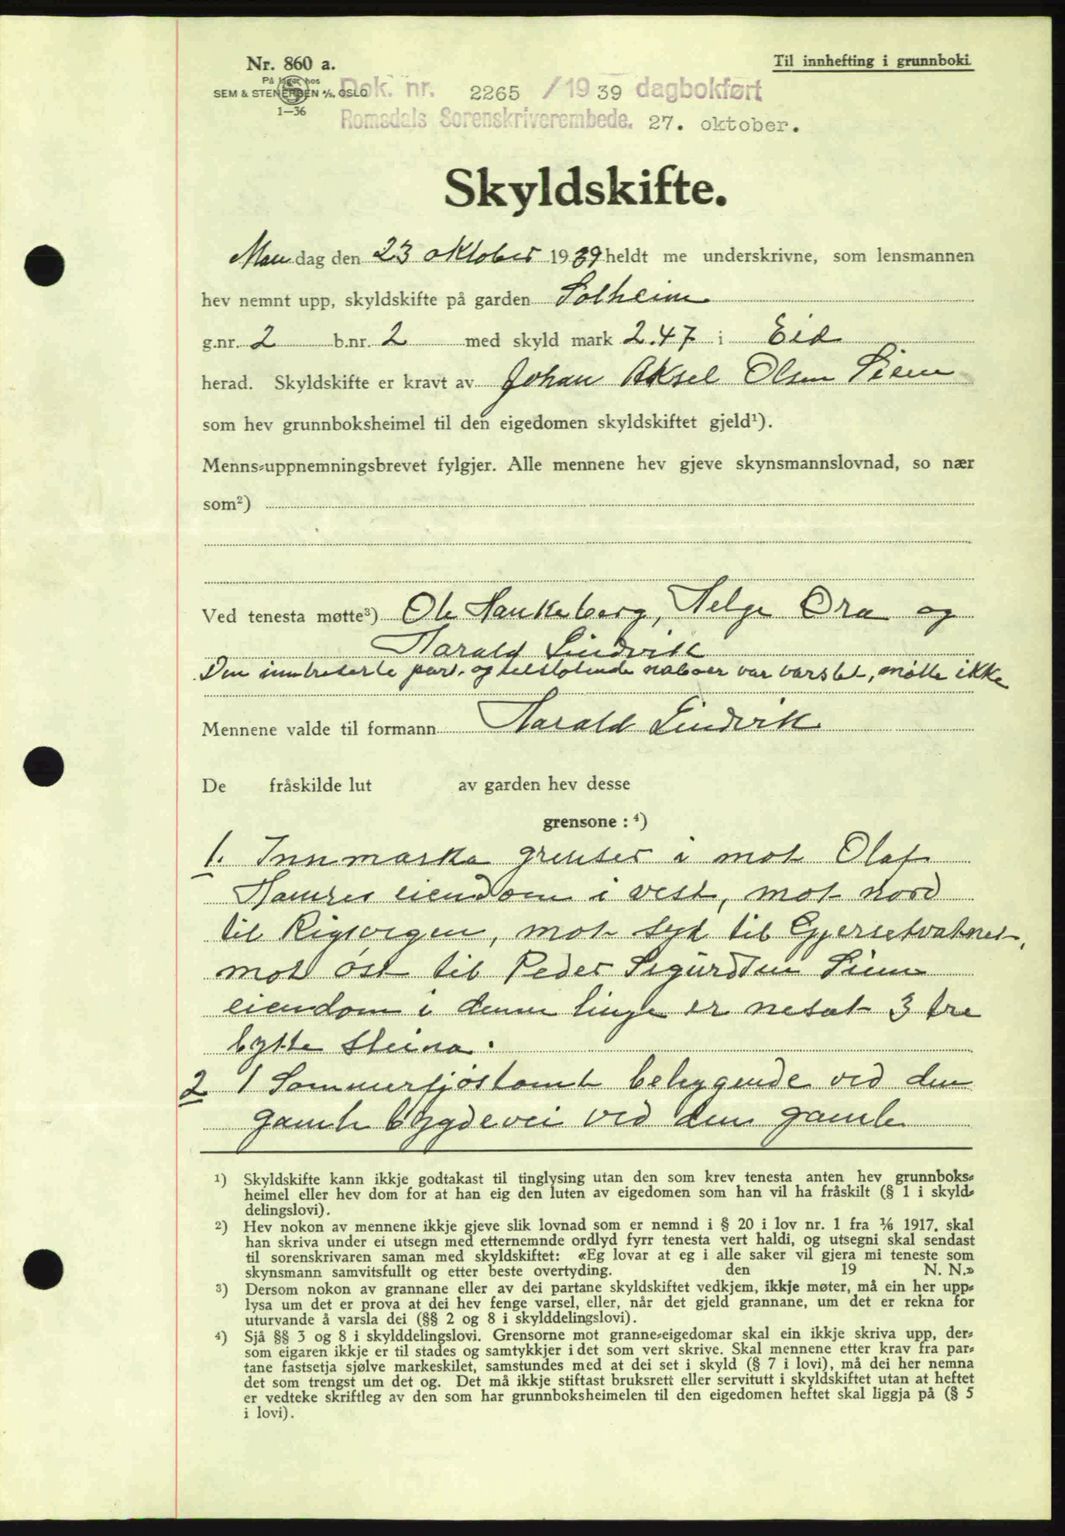 Nr. 860 a.
På lager hos
SEM & STENERSEN A/S, OSLO
1—36
Til innhefting i grunnboki
Dok. nr. 2265 / 1939 dagbokført
Romsdals Sorenskriverembede. 27. oktober.
Skyldskifte.
Mandag den 23 oktober 1939 heldt me underskrivne, som lensmannen
hev nemnt upp, skyldskifte på garden Solheim
g.nr. 2 b.nr. 2 med skyld mark 2.47 i Eid
herad. Skyldskifte er kravt av Johan Aksel Olsen Siem
som hev grunnboksheimel til den eigedomen skyldskiftet gjeld¹).
Menns-uppnemningsbrevet fylgjer. Alle mennene hev gjeve skynsmannslovnad, so nær
som²)
Ved tenesta møtte³) Ole Haukeberg, Helge Øra og
Harald Lindvik
Den inntreserte part. og tilstøtende naboer var varslet, møtte ikke
Mennene valde til formann Harald Lindvik
De fråskilde lut av garden hev desse
grensone : ⁴)
1. Innmarka grenser i mot Olaf
Hamres eiendom i vest, mot nord
til Rigsvegen, mot syd til Gjersetvatnet,
mot øst til Peder Sigurdsen Siem
eiendom i denne linje er nesat 3 tre
bytte steina.
2 1 Sommerfjøstomt behygende ved den
gamle bygdevei ved den gamle
¹) Skyldskifte kann ikkje godtakast til tinglysing utan den som krev tenesta anten hev grunnboks-
heimel eller hev dom for at han eig den luten av eigedomen som han vil ha fråskilt (§ 1 i skyld-
delingslovi).
²) Hev nokon av mennene ikkje gjeve slik lovnad som er nemnd i § 20 i lov nr. 1 fra 1/6 1917, skal
han skriva under ei utsegn med etternemnde ordlyd fyrr tenesta vert haldi, og utsegni skal sendast
til sorenskrivaren saman med skyldskiftet: «Eg lovar at eg i alle saker vil gjera mi teneste som
skynsmann samvitsfullt og etter beste overtyding. den 19 N. N.»
³) Dersom nokon av grannane eller av dei partane skyldskiftet vedkjem, ikkje møter, må ein her upp-
lysa um det er prova at dei hev fenge varsel, eller, når det gjeld grannane, um det er rekna for
uturvande å varsla dei (§§ 2 og 8 i skylddelingslovi).
⁴) Sjå §§ 3 og 8 i skylddelingslovi. Grensorne mot granne-eigedomar skal ein ikkje skriva upp, der-
som eigaren ikkje er til stades og samtykkjer i det som vert skrive. Skal mennene etter krav fra par-
tane fastsetja sjølve markeskilet, samstundes med at dei set i skyld (§ 7 i lovi), må dei her nemna
det som trengst um det og. Det må ikkje stiftast bruksrett eller servitutt i skyldskiftet utan at heftet
er vedteke skriftleg av den som har grunnboksheimelen til den eigedomen heftet skal liggja på (§ 5
i lovi).